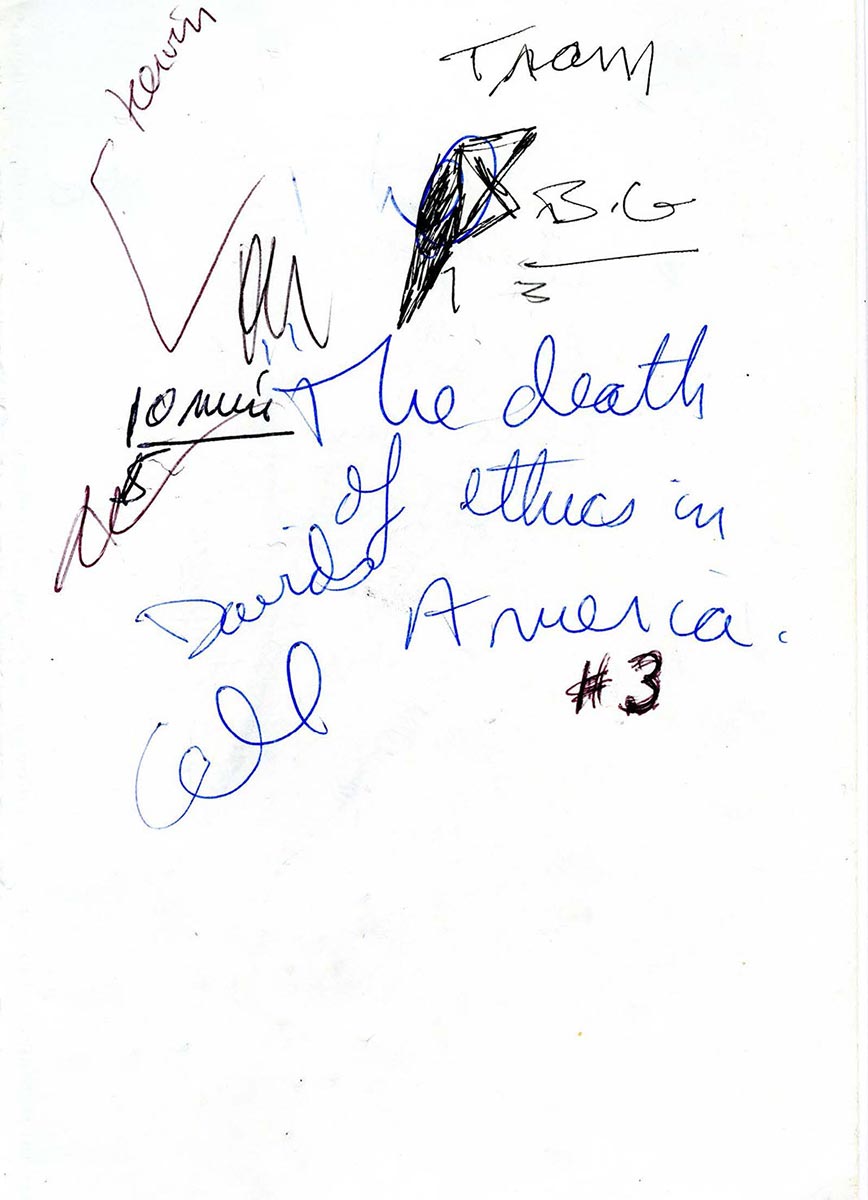 Kevin
B.G
3
10 min
5
The death
of ethics in
America.
David
Call
#3